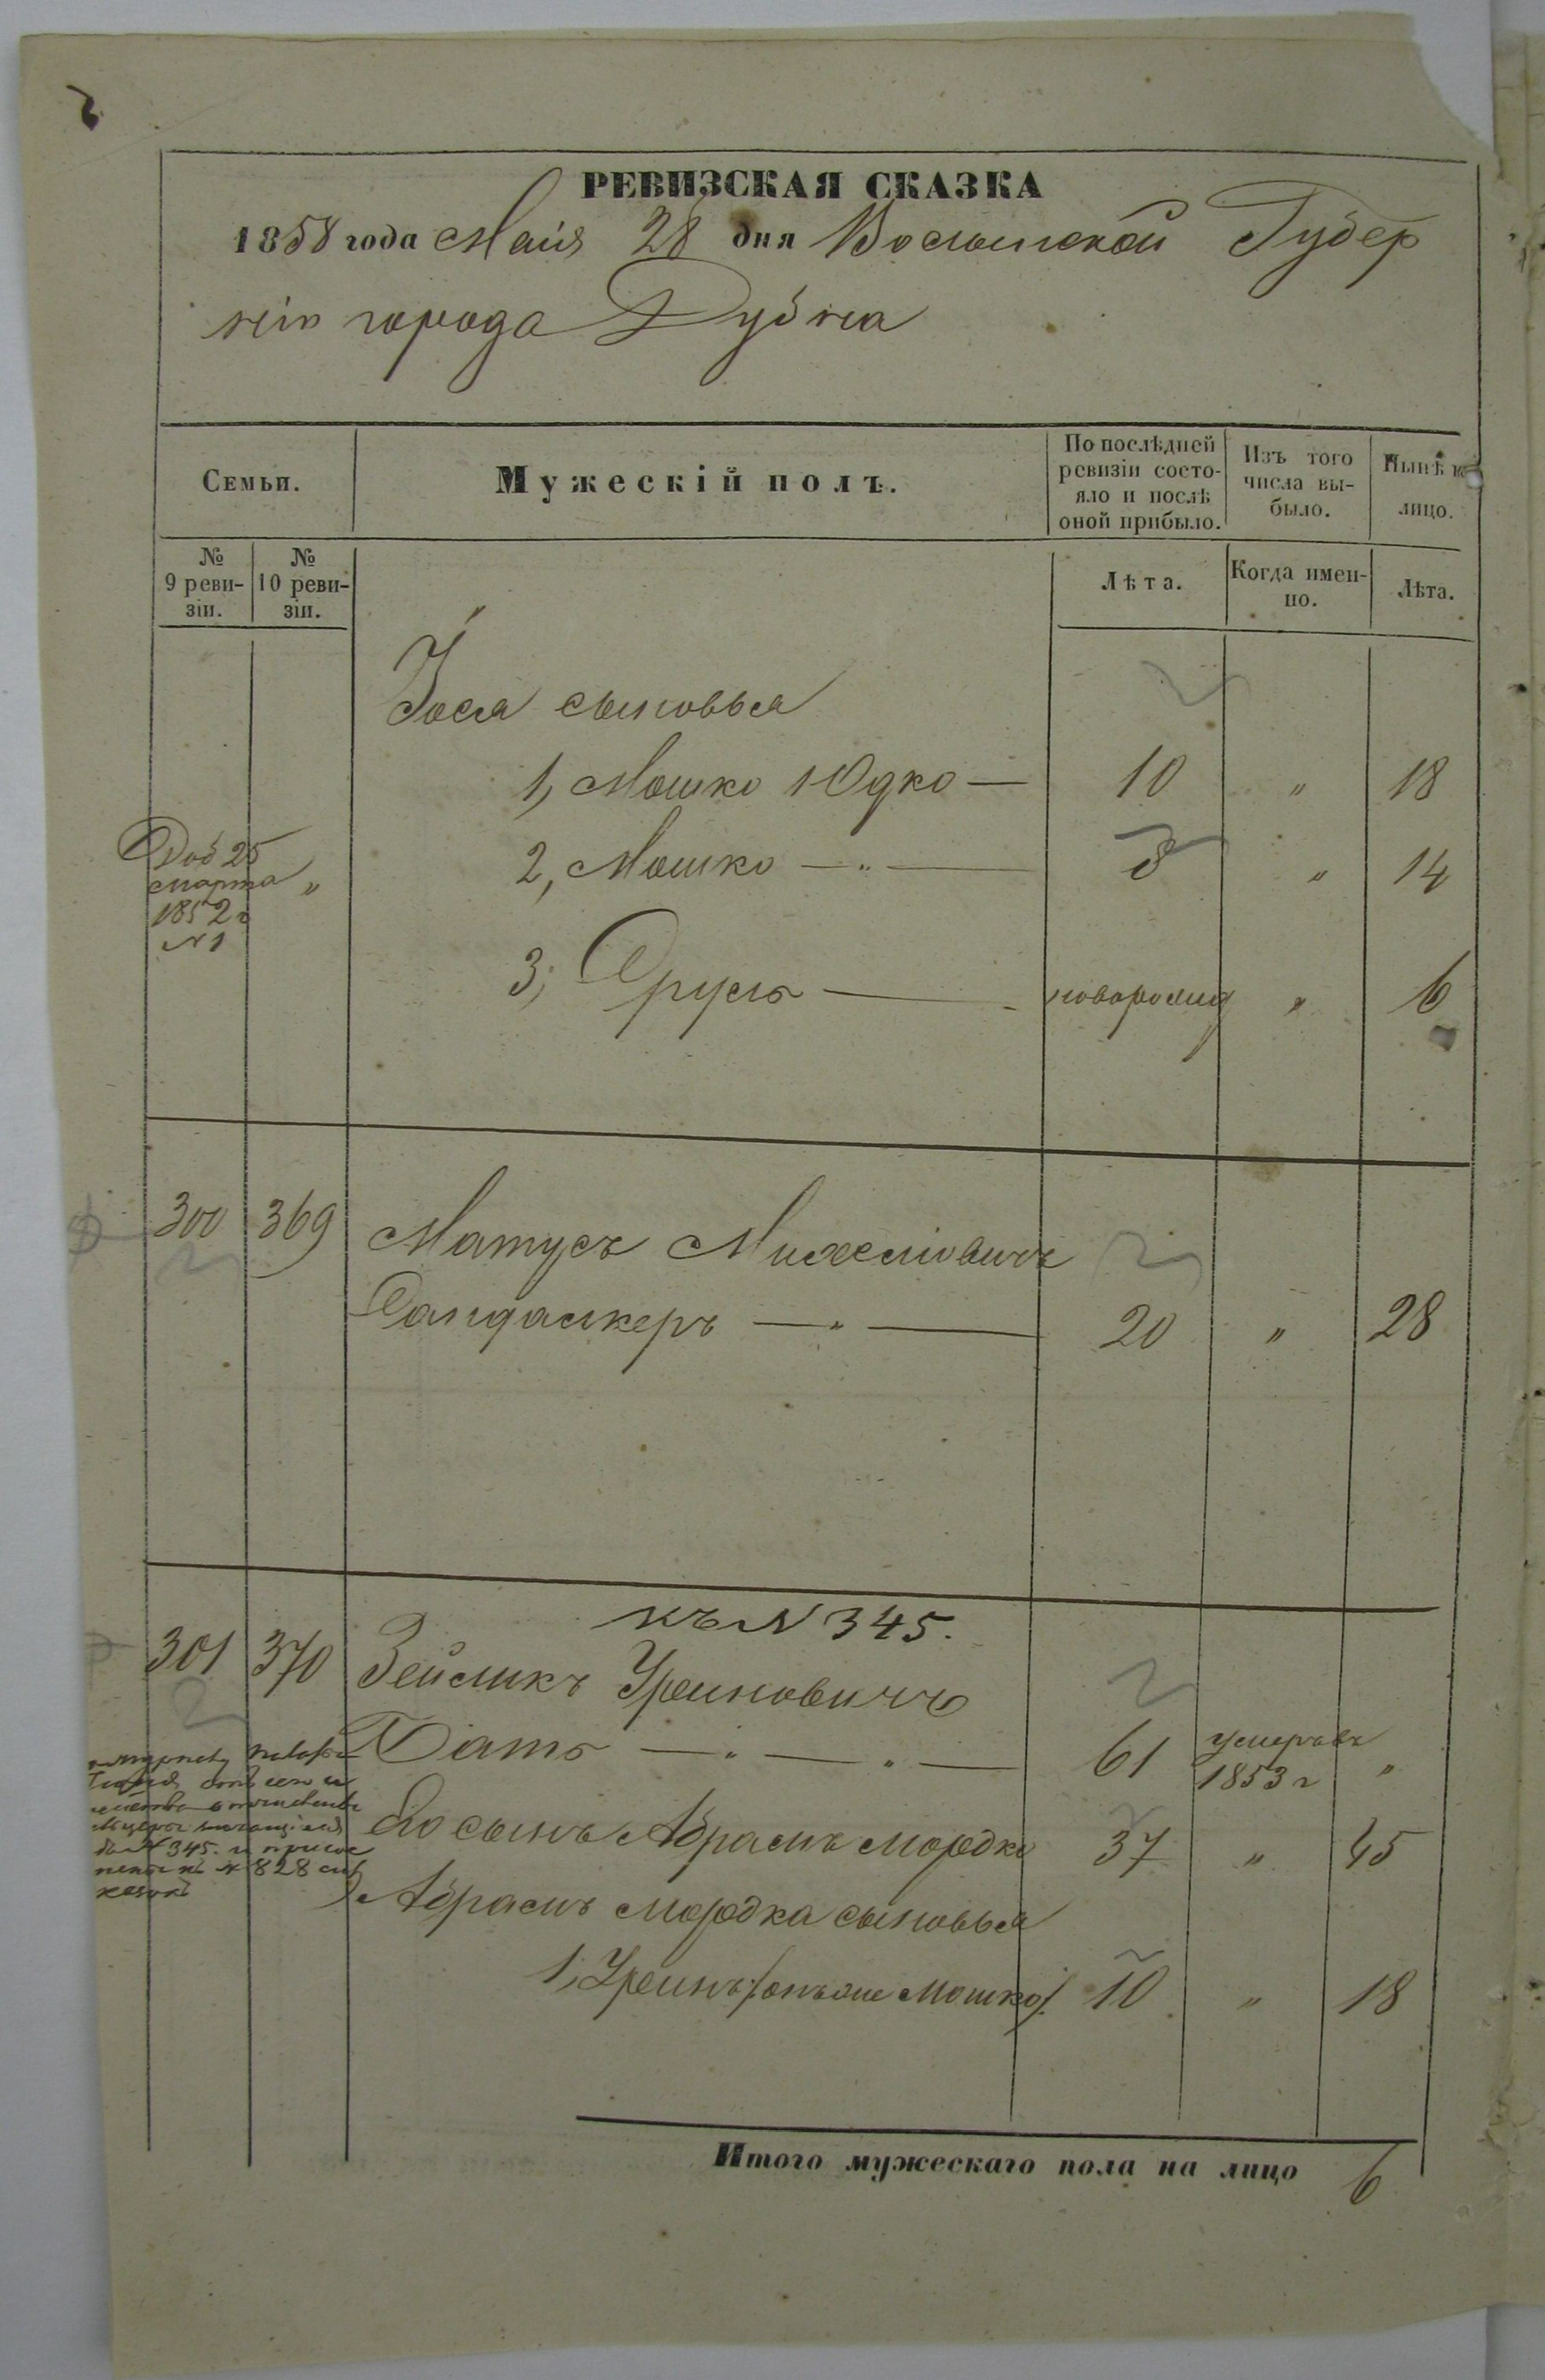 РЕВИЗСКАЯ СКАЗКА
1858 года Маія 28 дня Волынской Губер
ніи города Дубна
Семьи.
Мужескій полъ.
По послѣдней ревизіи состо-
яло и послѣ оной прибыло.
Изъ того числа вы-
было.
Нынѣ на лицо.
№ 9 реви-
зіи.
№ 10 реви-
зіи.
Лѣта.
Когда имен-
но.
Лѣта.
Іося сыновья
1, Мошко Юдко — 10 " 18
Доб 25
марта "
1852 г
№ 1
2, Мошко — " — 8 " 14
3, Сруль — новорожд " 6
300 369 Матусъ Михелiовичъ
Сандалкеръ — " — 20 " 28
къ № 345.
301 370 Зейликъ Уриновичъ
Батъ — " — " — 61 умеръ въ 1853 г "
Его сынъ Абрамъ Мордко 37 " 45
№ 345. и
№ 828
Абрамъ Мордка сыновья
1, Уринъ /онъ же Мошко/. 10 " 18
Итого мужескаго пола на лицо 6